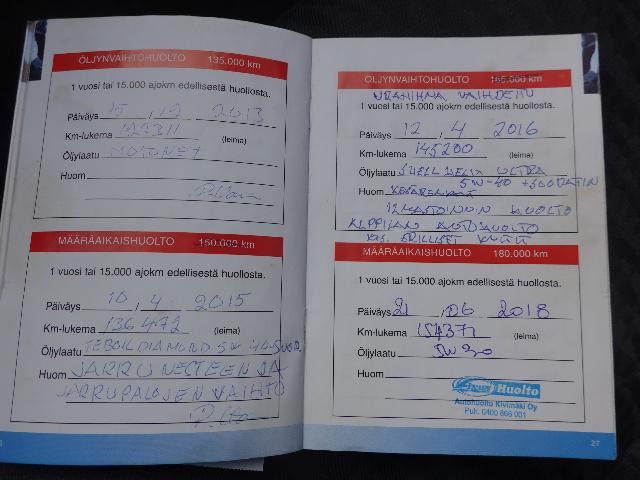 ÖLJYNVAIHTOHUOLTO 135.000 km
1 vuosi tai 15.000 ajokm edellisestä huollosta.
Päiväys 15 / 12 2013
Km-lukema 123311 (leima)
Öljylaatu MOTONET
Huom
MÄÄRÄAIKAISHUOLTO 150.000 km
1 vuosi tai 15.000 ajokm edellisestä huollosta.
Päiväys 10 / 4 2015
Km-lukema 136472 (leima)
Öljylaatu TEBOIL DIAMOND 5W 40
Huom JARRUNESTEEN JA
JARRUPALOJEN VAIHTO
ÖLJYNVAIHTOHUOLTO 165.000 km
1 vuosi tai 15.000 ajokm edellisestä huollosta.
Päiväys 12 / 4 2016
Km-lukema 145200 (leima)
Öljylaatu SHELL HELIX ULTRA
5W-40
Huom
HUOLTO
MÄÄRÄAIKAISHUOLTO 180.000 km
1 vuosi tai 15.000 ajokm edellisestä huollosta.
Päiväys 21 / 06 2018
Km-lukema 154371 (leima)
Öljylaatu 5W30
Huom
Huolto
Autohuolto Kivimäki Oy
Puh. 0400 866 001
27